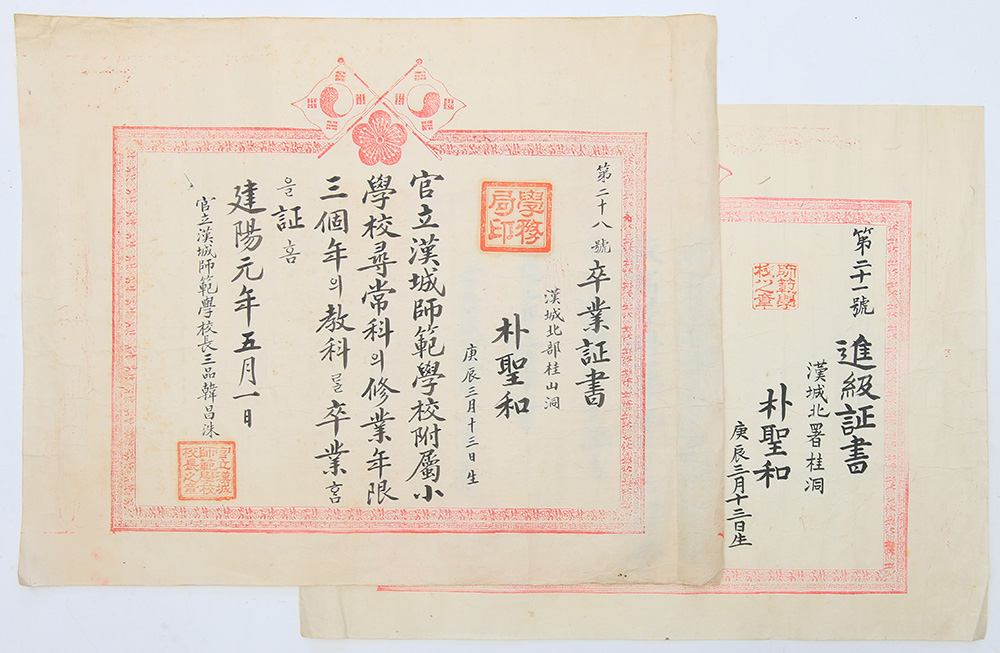 第二十八號 卒業証書
漢城北部桂山洞
朴聖和
庚辰三月十三日生
官立漢城師範學校附屬小
學校尋常科의修業年限
三個年의教科를卒業홈
을証홈
建陽元年五月一日
官立漢城師範學校長三品韓昌洙
學務
局印
官立漢城
師範學校
校長之章
第二十一號 進級証書
漢城北署桂洞
朴聖和
庚辰三月十三日生
師範學
校之章